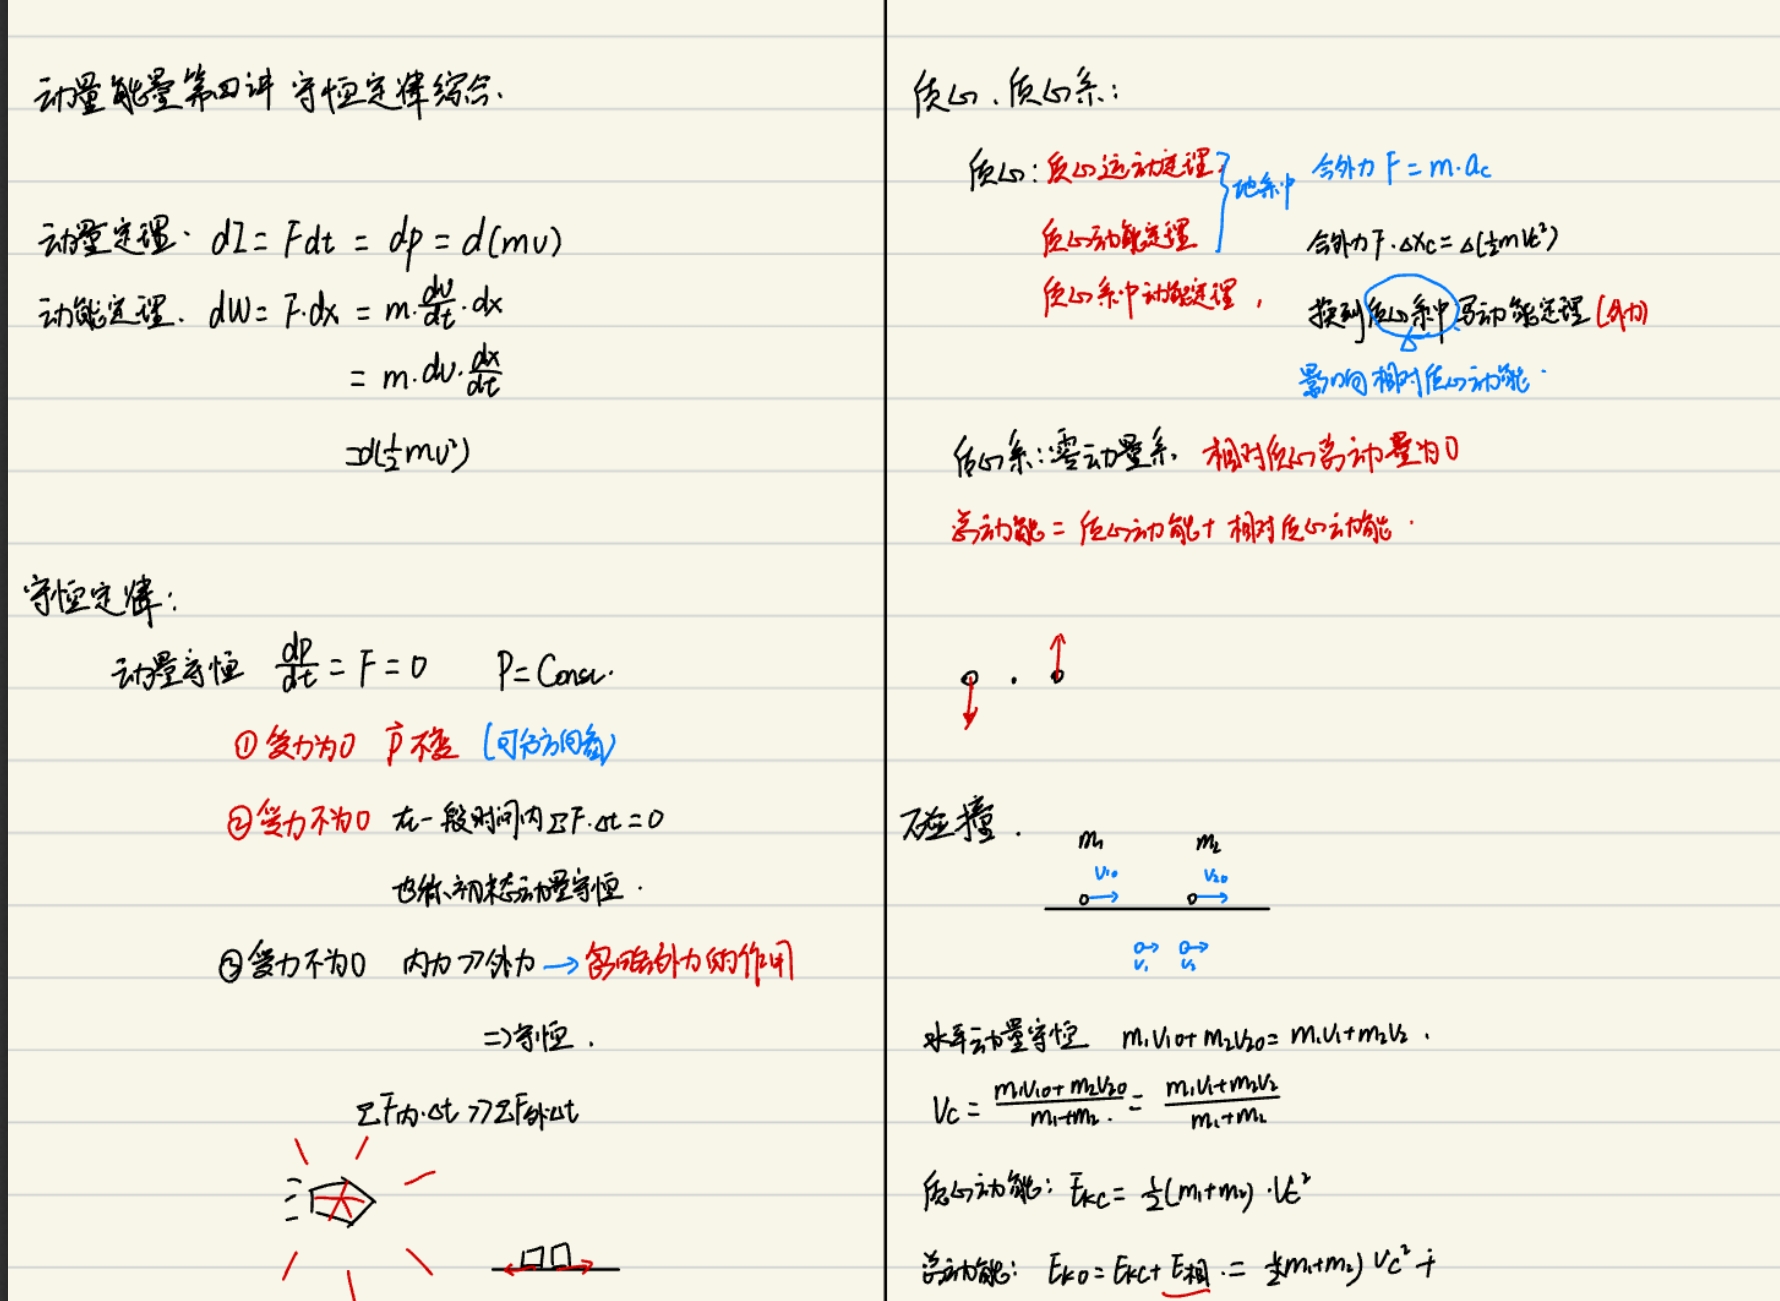 动量能量第四讲 守恒定律综合.
动量定理. dI = Fdt = dp = d(mv)
动能定理. dW = F·dx = m·dv/dt·dx
= m·dv·dx/dt
= d(½mv²)
守恒定律:
动量守恒 dp/dt = F = 0 P = Const.
① 受力为0 p⃗不变 (可分方向看)
② 受力不为0 在一段时间内ΣF·Δt = 0
也称初末态动量守恒.
③ 受力不为0 内力≫外力 → 忽略外力的作用
⇒守恒.
ΣF内·Δt ≫ ΣF外Δt
质心、质心系:
质心: 质心运动定理 } 地系中 合外力 F = m·ac
质心动能定理 合外力F·Δxc = Δ(½mvc²)
质心系中动能定理, 换到质心系中写动能定理 (外力)
影响相对质心动能.
质心系: 零动量系. 相对质心总动量为0
总动能 = 质心动能 + 相对质心动能.
碰撞.
m₁ m₂
v₁₀ v₂₀
v₁ v₂
水平动量守恒 m₁v₁₀ + m₂v₂₀ = m₁v₁ + m₂v₂.
Vc = (m₁v₁₀ + m₂v₂₀)/(m₁+m₂) = (m₁v₁ + m₂v₂)/(m₁+m₂)
质心动能: Ekc = ½(m₁+m₂)·Vc²
总动能: Ek0 = Ekc + E相 = ½(m₁+m₂)Vc² +